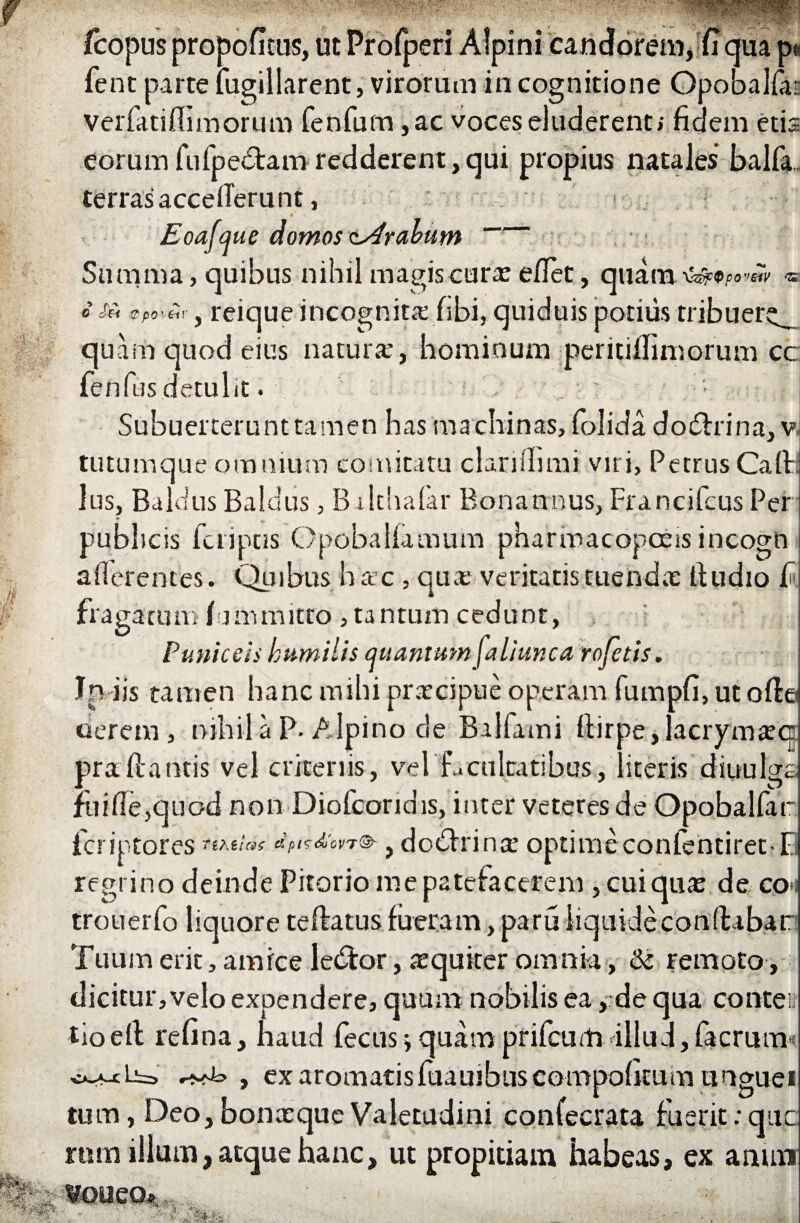 ſcopus propoſitus, ut Proſperi Alpini candorem, ſi qua
ſent parte ſugillarent, virorum in cognitione
verſatiſſimorum ſenſum, ac voces eluderent; fidem
eorum ſuſpectam redderent, qui propius natales balſa
terras acceſſerunt,
Eoaſque domos Arabum ——
Summa, quibus nihil magis curæ eſſet, quàm
, reique incognitæ ſibi, quiduis potiùs
quàm quod eius naturæ, hominum peritiſſimorum
ſenſus detulit.
Subuerterunt tamen has machinas, ſolidâ doctrina,
tutumque omnium comitatu clariſſimi viri, Petrus
lus, Baldus Baldus, Balthaſar Bonannus, Franciſcus Per
publicis ſcriptis Opobalſamum pharmacopœis incogn
aſſerentes. Quibus hæc, quæ veritatis tuendæ ſtudio
fragatum ſummitto, tantum cedunt,
Puniceis humilis quantum ſaliunca roſetis.
In iis tamen hanc mihi præcipuè operam ſumpſi, ut oſte
derem, nihil à P. Alpino de Balſami ſtirpe, lacrymæq
præſtantis vel criteriis, vel facultatibus, literis diuulga
fuiſſe, quod non Dioſcoridis, inter veteres de Opobalſar
ſcriptores , doctrinæ optimè conſentiret.
regrino deinde Pitorio me patefacerem, cui quæ de co
trouerſo liquore teſtatus fueram, parũ liquidè conſtaban
Tuum erit, amice lector, æquiter omnia, & remoto,
dicitur, velo expendere, quum nobilis ea, de qua conte
tio eſt reſina, haud ſecus; quàm priſcum illud, ſacrum
, ex aromatis ſuauibus compoſitum ungue
tum, Deo, bonæque Valetudini conſecrata fuerit:
rum illum, atque hanc, ut propitiam habeas, ex
voueo.